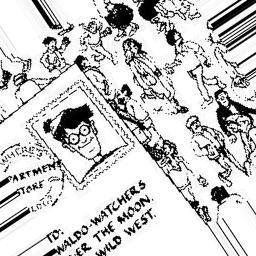 PARTMENT
STORE
TO:
WALDO-WATCHERS
ER THE MOON,
WILD WEST.